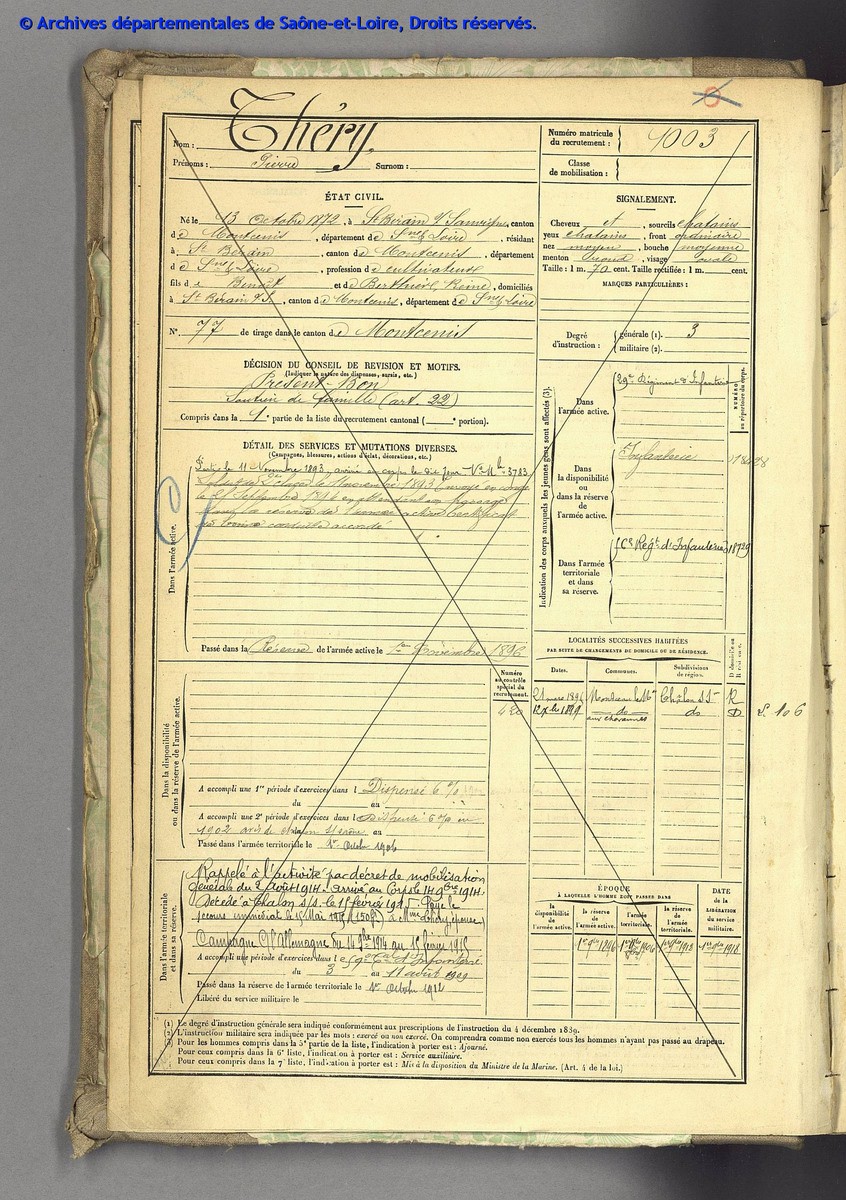 © Archives départementales de Saône-et-Loire, Droits réservés.
Nom : Théry
Prénoms : Pierre Surnom :
Numéro matricule du recrutement : 1003
Classe de mobilisation :
ÉTAT CIVIL.
Né le 13 Octobre 1872, à St Bérain s/ Sanvignes, canton
de Montcenis, département de Sne & Loire, résidant
à St Bérain, canton de Montcenis, département
de Sne & Loire, profession de cultivateur
fils de Benoît et de Berthier Reine, domiciliés
à St Bérain s/ S., canton de Montcenis, département de Sne & Loire
N° 77 de tirage dans le canton de Montcenis
SIGNALEMENT.
Cheveux et, sourcils chatains
yeux chatains, front ordinaire
nez moyen, bouche moyenne
menton rond, visage ovale
Taille : 1 m. 70 cent. Taille rectifiée : 1 m. cent.
MARQUES PARTICULIÈRES :
Degré d'instruction : générale (1). 3
militaire (2).
DÉCISION DU CONSEIL DE REVISION ET MOTIFS.
(Indiquer la nature des dispenses, sursis, etc.)
Présent - Bon
Soutien de famille (art. 22)
Compris dans la 1e partie de la liste du recrutement cantonal ( portion).
DÉTAIL DES SERVICES ET MUTATIONS DIVERSES.
(Campagnes, blessures, actions d'éclat, décorations, etc.)
Dans l'armée active.
Parti le 11 Novembre 1893, arrivé au corps le dit jour No Mle 3783
Soldat de 2e classe le 11 novembre 1893 Envoyé en congé
le 21 Septembre 1896 en attendant son passage
dans la réserve de l'armée active. Certificat
de bonne conduite accordé
Passé dans la Réserve de l'armée active le 1er Novembre 1896
Indication des corps auxquels les jeunes gens sont affectés (3).
NUMÉRO au répertoire du corps.
Dans l'armée active.
29e Régiment d'Infanterie
Dans la disponibilité ou dans la réserve de l'armée active.
Infanterie
Dans l'armée territoriale et dans sa réserve.
Regt d'Infanterie 18729
LOCALITÉS SUCCESSIVES HABITÉES
PAR SUITE DE CHANGEMENTS DE DOMICILE OU DE RÉSIDENCE.
Dates. Communes. Subdivisions de région. D domicile ou R résidence.
21 mars 1896 Montceau les Mes Châlon s/ S R
12 Xbre 1899 do do D
aux charannes
S. 106
Dans la disponibilité ou dans la réserve de l'armée active.
Numéro au contrôle spécial du recrutement.
420
A accompli une 1re période d'exercices dans l Dispensé 6 %
du au
A accompli une 2e période d'exercices dans l Dispensé 6 % en
1902 au
Passé dans l'armée territoriale le 1er Octobre 1906
Dans l'armée territoriale et dans sa réserve.
Rappelé à l'activité par décret de mobilisation
générale du 2 Août 1914. arrivé au Corps le 14 9bre 1914.
Décédé à Chalon s/s. le 15 février 1915. Payé le
secours immédiat le 15 Mai 1915 (150f) à Mme Théry (épouse)
Campagne C/ l'Allemagne du 14 9bre 1914 au 15 février 1915
A accompli une période d'exercices dans le 59e Tal d'Infanterie
du 3 au 11 août 1909
Passé dans la réserve de l'armée territoriale le 1er Octobre 1912
Libéré du service militaire le
ÉPOQUE
À LAQUELLE L'HOMME DOIT PASSER DANS
la disponibilité de l'armée active. la réserve de l'armée active. l'armée territoriale. la réserve de l'armée territoriale.
DATE de la LIBÉRATION du service militaire.
(1) Le degré d'instruction générale sera indiqué conformément aux prescriptions de l'instruction du 4 décembre 1889.
(2) L'instruction militaire sera indiquée par les mots : exercé ou non exercé. On comprendra comme non exercés tous les hommes n'ayant pas passé au drapeau.
(3) Pour les hommes compris dans la 5e partie de la liste, l'indication à porter est : Ajourné.
Pour ceux compris dans la 6e liste, l'indication à porter est : Service auxiliaire.
Pour ceux compris dans la 7e liste, l'indication à porter est : Mis à la disposition du Ministre de la Marine. (Art. 4 de la loi.)